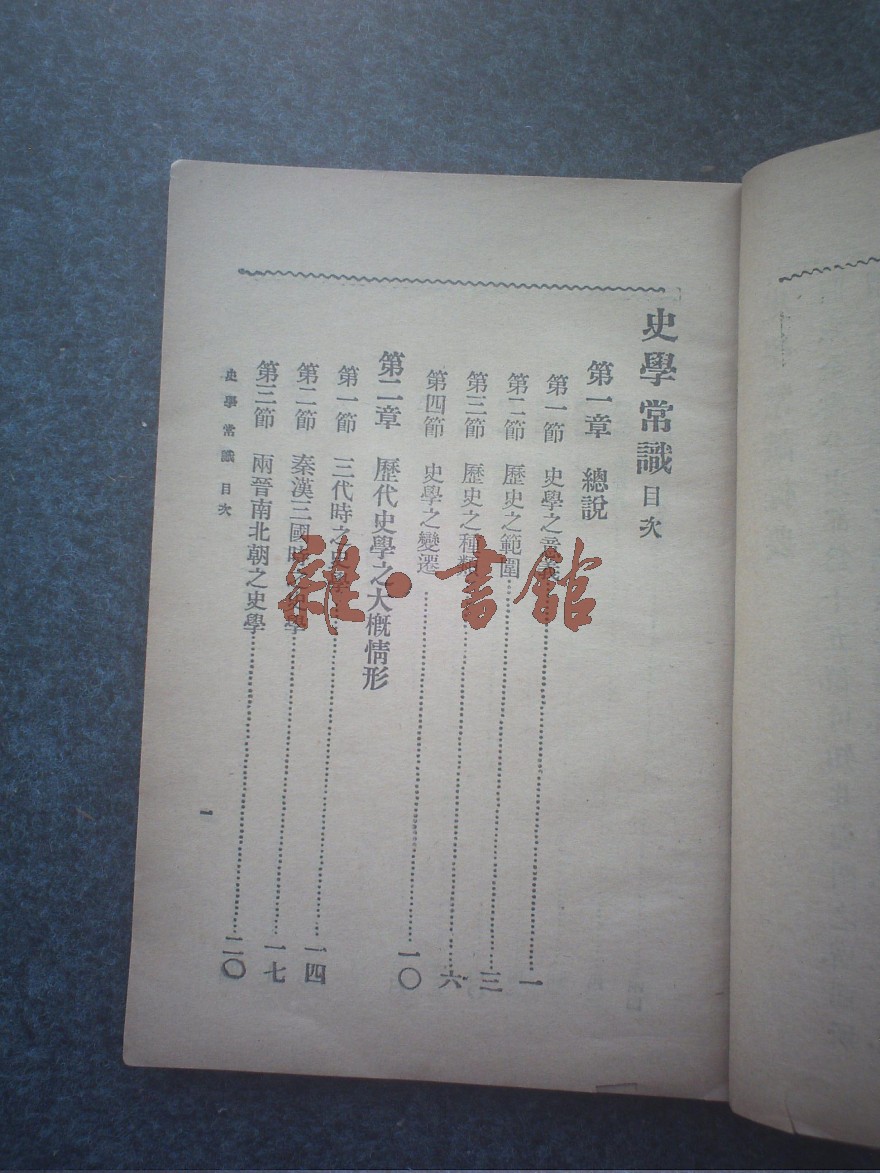 史學常識目次
第一章 總說
第一節 史學之意義……一
第二節 歷史之範圍……三
第三節 歷史之種類……六
第四節 史學之變遷……一〇
第二章 歷代史學之大槪情形
第一節 三代時之史學……一四
第二節 秦漢三國時之史學……一七
第三節 兩晉南北朝之史學……二〇
史學常識 目次
一
雜·書館